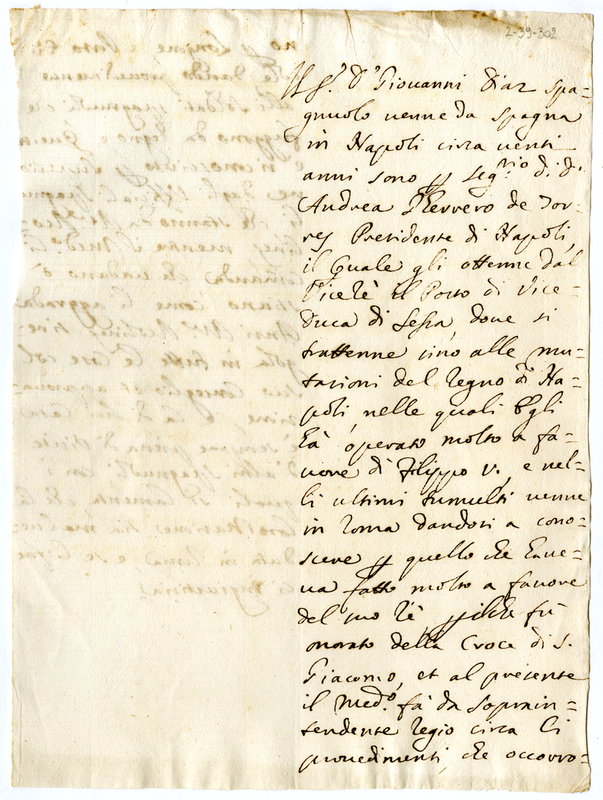 2-39-302
Il S.r D. Giovanni Diaz Spa=
gnuolo venne da Spagna
in Napoli circa venti
anni sono p Seg.rio di D.
Andrea Guerrero de Tor=
res Presidente di Napoli,
il quale gli ottenne dal
Vicerè il Posto di Vice=
Duca di Sessa, dove si
trattenne sino alle mu=
tazioni del Regno di Na=
poli, nelle quali Egli
hà operato molto a fa=
vore di Filippo V., e nel=
li ultimi tumulti venne
in Roma dandosi a cono=
scere p quello che have=
va fatto molto a favore
del suo Rè, p il che fù
onorato della Croce di S.
Giacomo, et al presente
il Med.o fà da soprain=
tendente Regio circa li
provedimenti, che occorro=